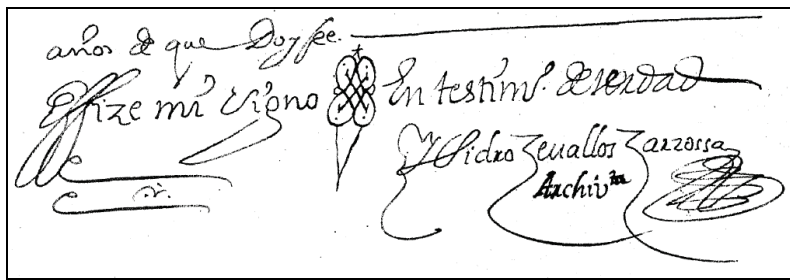 años de que Doy fee.
E fize mi signo En testimº. de verdad
Ysidro Zevallos Zarzossa
Archivta